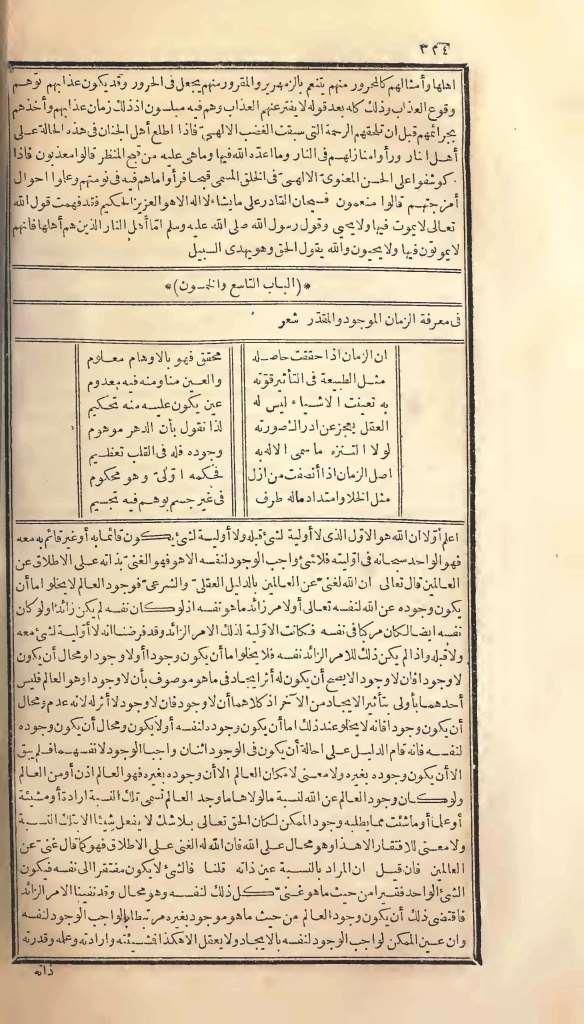 ٣٢٤
اهلها وأمثالهم كالمحرور منهم يتنعم بالزمهرير والمقرور منهم يجعل فى الحرور وقد يكون عذابهم توهم
وقوع العذاب وذلك كله بعد قوله لا يفترعنهم العذاب وهم فيه مبلسون اذ ذلك زمان عذابهم وأخذهم
بجرائمهم قبل ان تلحقهم الرحمة التى سبقت الغضب الالهىّ فاذا اطلع أهل الجنان فى هذه الحالة على
أهل النار ورأوا منازلهم فى النار وما اعدّه الله فيها وما هى عليه من قبح المنظر قالوا معذبون فاذا
كوشفوا على الحسن المعنوىّ الالهىّ فى الخلق المسمى قبحا فرأوا ما هم فيه فى نومتهم وعلموا احوال
أمزجتهم قالوا منعمون فسبحان القادر على ما يشاء لا اله الا هو العزيز الحكيم فقد فهمت قول الله
تعالى لا يموت فيها ولا يحيى وقول رسول الله صلى الله عليه وسلم امّا أهل النار الذين هم أهلها فانهم
لا يموتون فيها ولا يحيون والله يقول الحق وهو يهدى السبيل
*(الباب التاسع والخمسون)*
فى معرفة الزمان الموجود والمقدّر شعر
ان الزمان اذا حققت حاصله محقق فهو بالاوهام معلوم
مثل الطبيعة فى التأثير قوّته والعين منها ومنه فيه معدوم
به تعينت الاشياء ليس له عين يكون عليه منه تحكيم
العقل يعجز عن ادراك صورته لذا نقول بأن الدهر موهوم
لولا التنزه ما سمى الاله به وجوده فله فى القلب تعظيم
اصل الزمان اذا أنصفت من ازل فحكمه اوّلىّ وهو محكوم
مثل الخلا وامتداد ماله طرف فى غير جسم بوهم فيه تجسيم
اعلم أوّلا ان الله هو الاوّل الذى لا أولية لشئ قبله ولا أولية لشئ يكون قائما به أو غير قائم به معه
فهو الواحد سبحانه فى اوّليته فلا شئ واجب الوجود لنفسه الا هو فهو الغنىّ بذاته على الاطلاق عن
العالمين قال تعالى ان الله لغنىّ عن العالمين بالدليل العقلىّ والشرعىّ فوجود العالم لا يخلو اما أن
يكون وجوده عن الله لنفسه تعالى أو لامر زائد ما هو نفسه اذ لو كان نفسه لم يكن زائدا ولو كان
نفسه ايضا لكان مركبا فى نفسه فكانت الاوّلية لذلك الامر الزائد وقد فرضنا انه لا أوّلية لشئ معه
ولا قبله واذ الم يكن ذلك للامر الزائد نفسه فلا يخلو اما أن يكون وجودا أو لا وجودا ومحال أن يكون
لا وجودا فان لا وجود لا يصح أن يكون له أثر ايجاد فى ما هو موصوف بأن لا وجود وهو العالم فليس
أحدهما بأولى بتأثير الايجاد من الآخر اذ كلاهما أن لا وجود فان لا وجود لا أثر له لانه عدم ومحال
أن يكون وجودا فانه لا يخلو عند ذلك اما أن يكون وجوده لنفسه أو لا يكون ومحال أن يكون وجوده
لنفسه فانه قام الدليل على احالة أن يكون فى الوجود اثنان واجبا الوجود لانفسهما فلم يبق
الا أن يكون وجوده بغيره ولا معنى لامكان العالم الا أن وجوده بغيره فهو العالم اذن أو من العالم
ولو كان وجود العالم عن الله لنسبة ما لولاها ما وجد العالم تسمى تلك النسبة ارادة أو مشيئة
أو علما أو ما شئت مما يطلبه وجود الممكن لكان الحق تعالى بلا شك لا يفعل شيئا الا بتلك النسبة
ولا معنى للافتقار الا هذا وهو محال على الله فان الله له الغنى على الاطلاق فهو كما قال غنىّ عن
العالمين فان قيل ان المراد بالنسبة عين ذاته قلنا فالشئ لا يكون مفتقرا الى نفسه فيكون
الشئ الواحد فقيرا من حيث ما هو غنىّ كل ذلك لنفسه وهو محال وقد نفينا الامر الزائد
فاقتضى ذلك أن يكون وجود العالم من حيث ما هو موجود بغيره مرتبطا بالواجب الوجود لنفسه
وان عين الممكن لواجب الوجود لنفسه بالايجاد ولا يعقل الا هكذا فمشيئته وارادته وعلمه وقدرته
ذاته